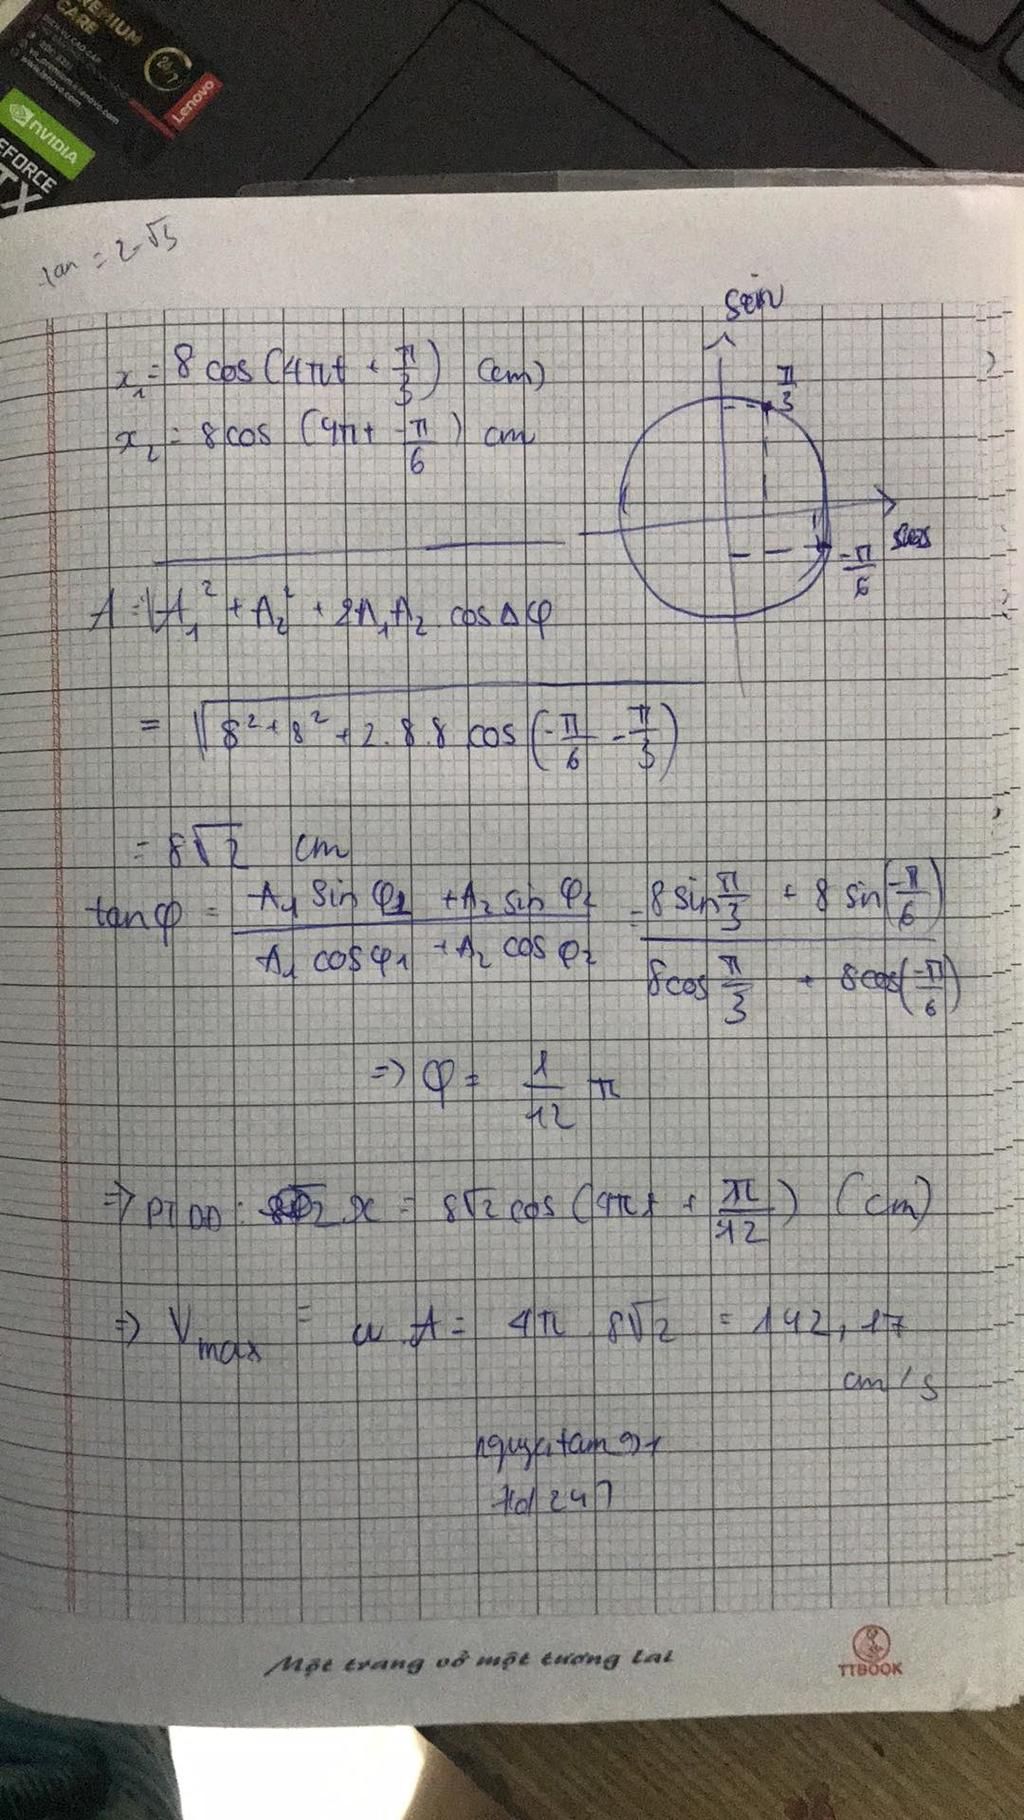 PREMIUM
CARE
24/7
Lenovo
www.lenovo.com
NVIDIA
EFORCE
TX
tan = 2-√3
sin
x₁ = 8 cos (4πt + π/3) (cm)
π/3
x₂ = 8 cos (4πt + -π/6) cm
cos
-π/6
A = √(A₁² + A₂² + 2A₁A₂ cos Δφ)
= √(8² + 8² + 2.8.8 cos (-π/6 - π/3))
= 8√2 cm
tanφ = (A₁ sin φ₁ + A₂ sin φ₂)/(A₁ cosφ₁ + A₂ cos φ₂) = (8 sin π/3 + 8 sin(-π/6))/(8cos π/3 + 8cos(-π/6))
=> φ = 1/12 π
=> PTDD: x = 8√2 cos (4πt + π/12) (cm)
=> Vmax = ω.A = 4π 8√2 = 142,17
cm/s
247
Một trang vở một tương lai
TTBOOK